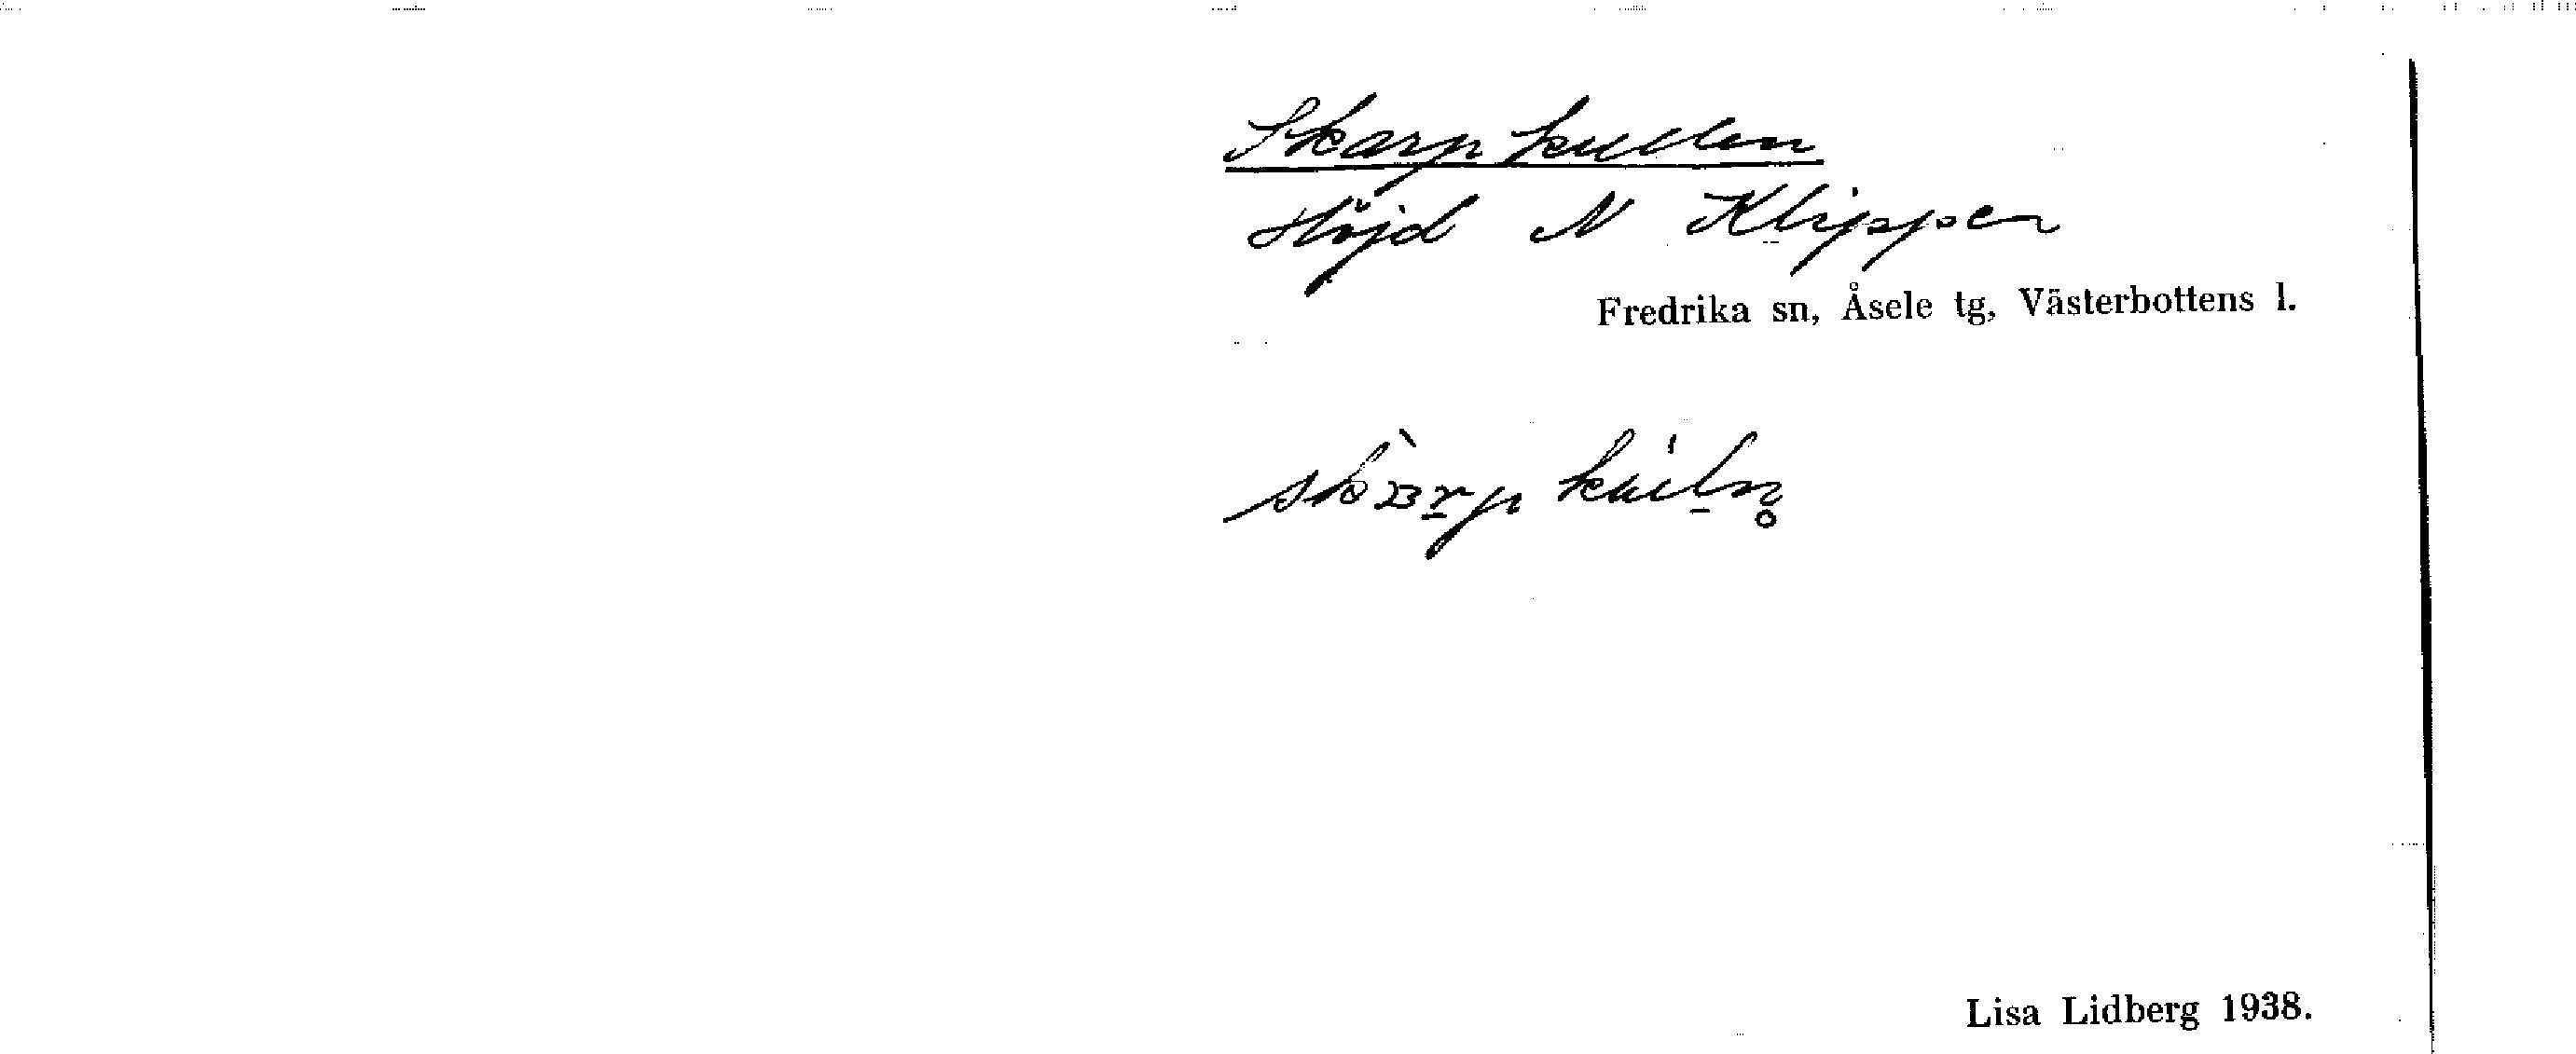 Skarpkullen
Höjd N Klippen
Fredrika sn, Åsele tg, Västerbottens l.
Lisa Lidberg 1938.